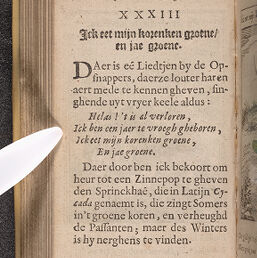 XXXIII
Ick eet mijn korenken groene/
en jae groene.
DAer is eē Liedtjen by de Op-
snappers, daerze louter haren
aert mede te kennen gheven, sin-
ghende uyt vryer keele aldus:
Helas! 't is al verloren,
Ick ben een jaer te vroegh gheboren,
Ick eet mijn korenken groene,
En jae groene.
Daer door ben ick bekoort om
heer tot een Zinnepop te gheven
den Sprinckhaē, die in Latijn Cy-
cada genaemt is, die zingt Somers
in't groene koren, en verheughd
de Passanten; maer des Winters
is hy nerghens te vinden.